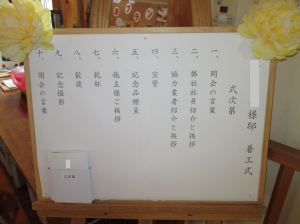 様邸 着工式
式次第
一、開会の言葉
二、弊社社員紹介と挨拶
三、協力業者紹介と挨拶
四、宣誓
五、記念品贈呈
六、施主様ご挨拶
七、乾杯
八、歓談
九、記念撮影
十、閉会の言葉